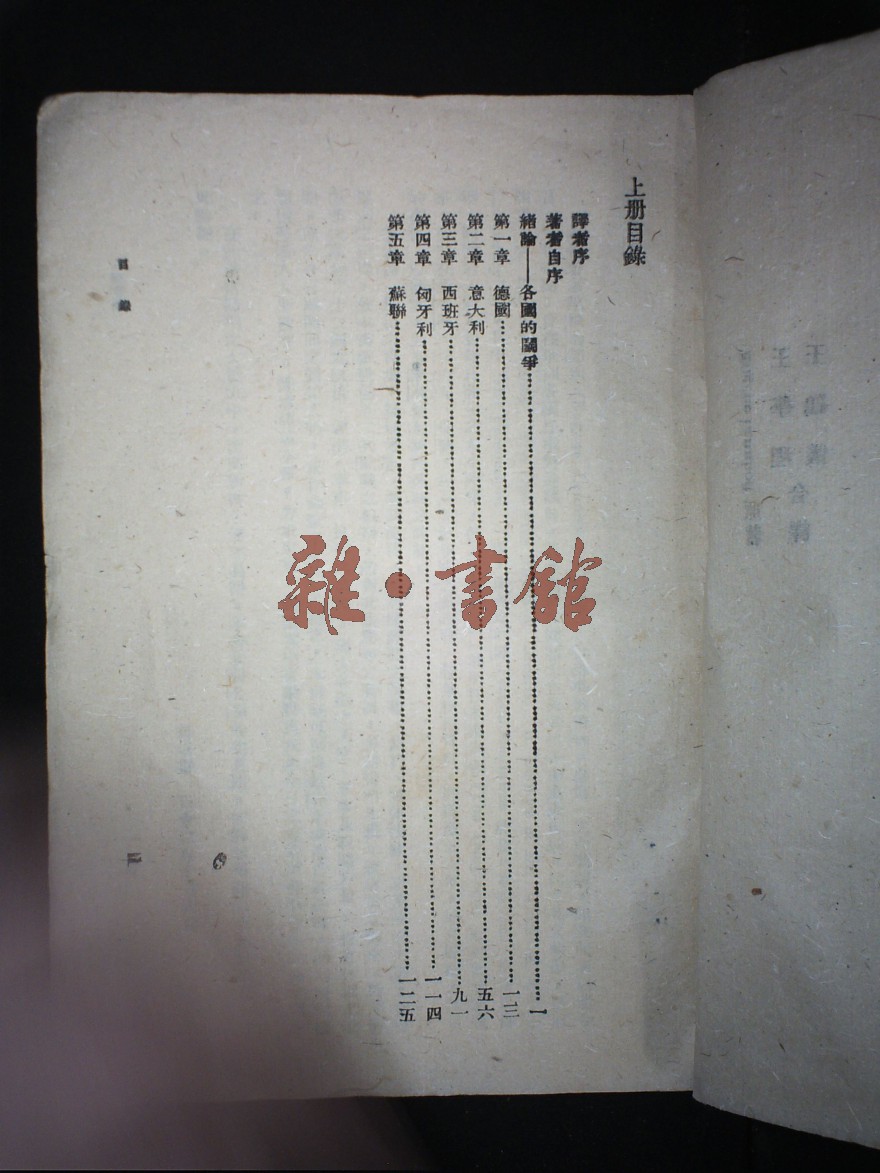 上册目錄
譯者序
著者自序
緒論——各國的鬭爭……一
第一章 德國……一三
第二章 意大利……五六
第三章 西班牙……九一
第四章 匈牙利……一一四
第五章 蘇聯……一二五
目錄
雜·書館